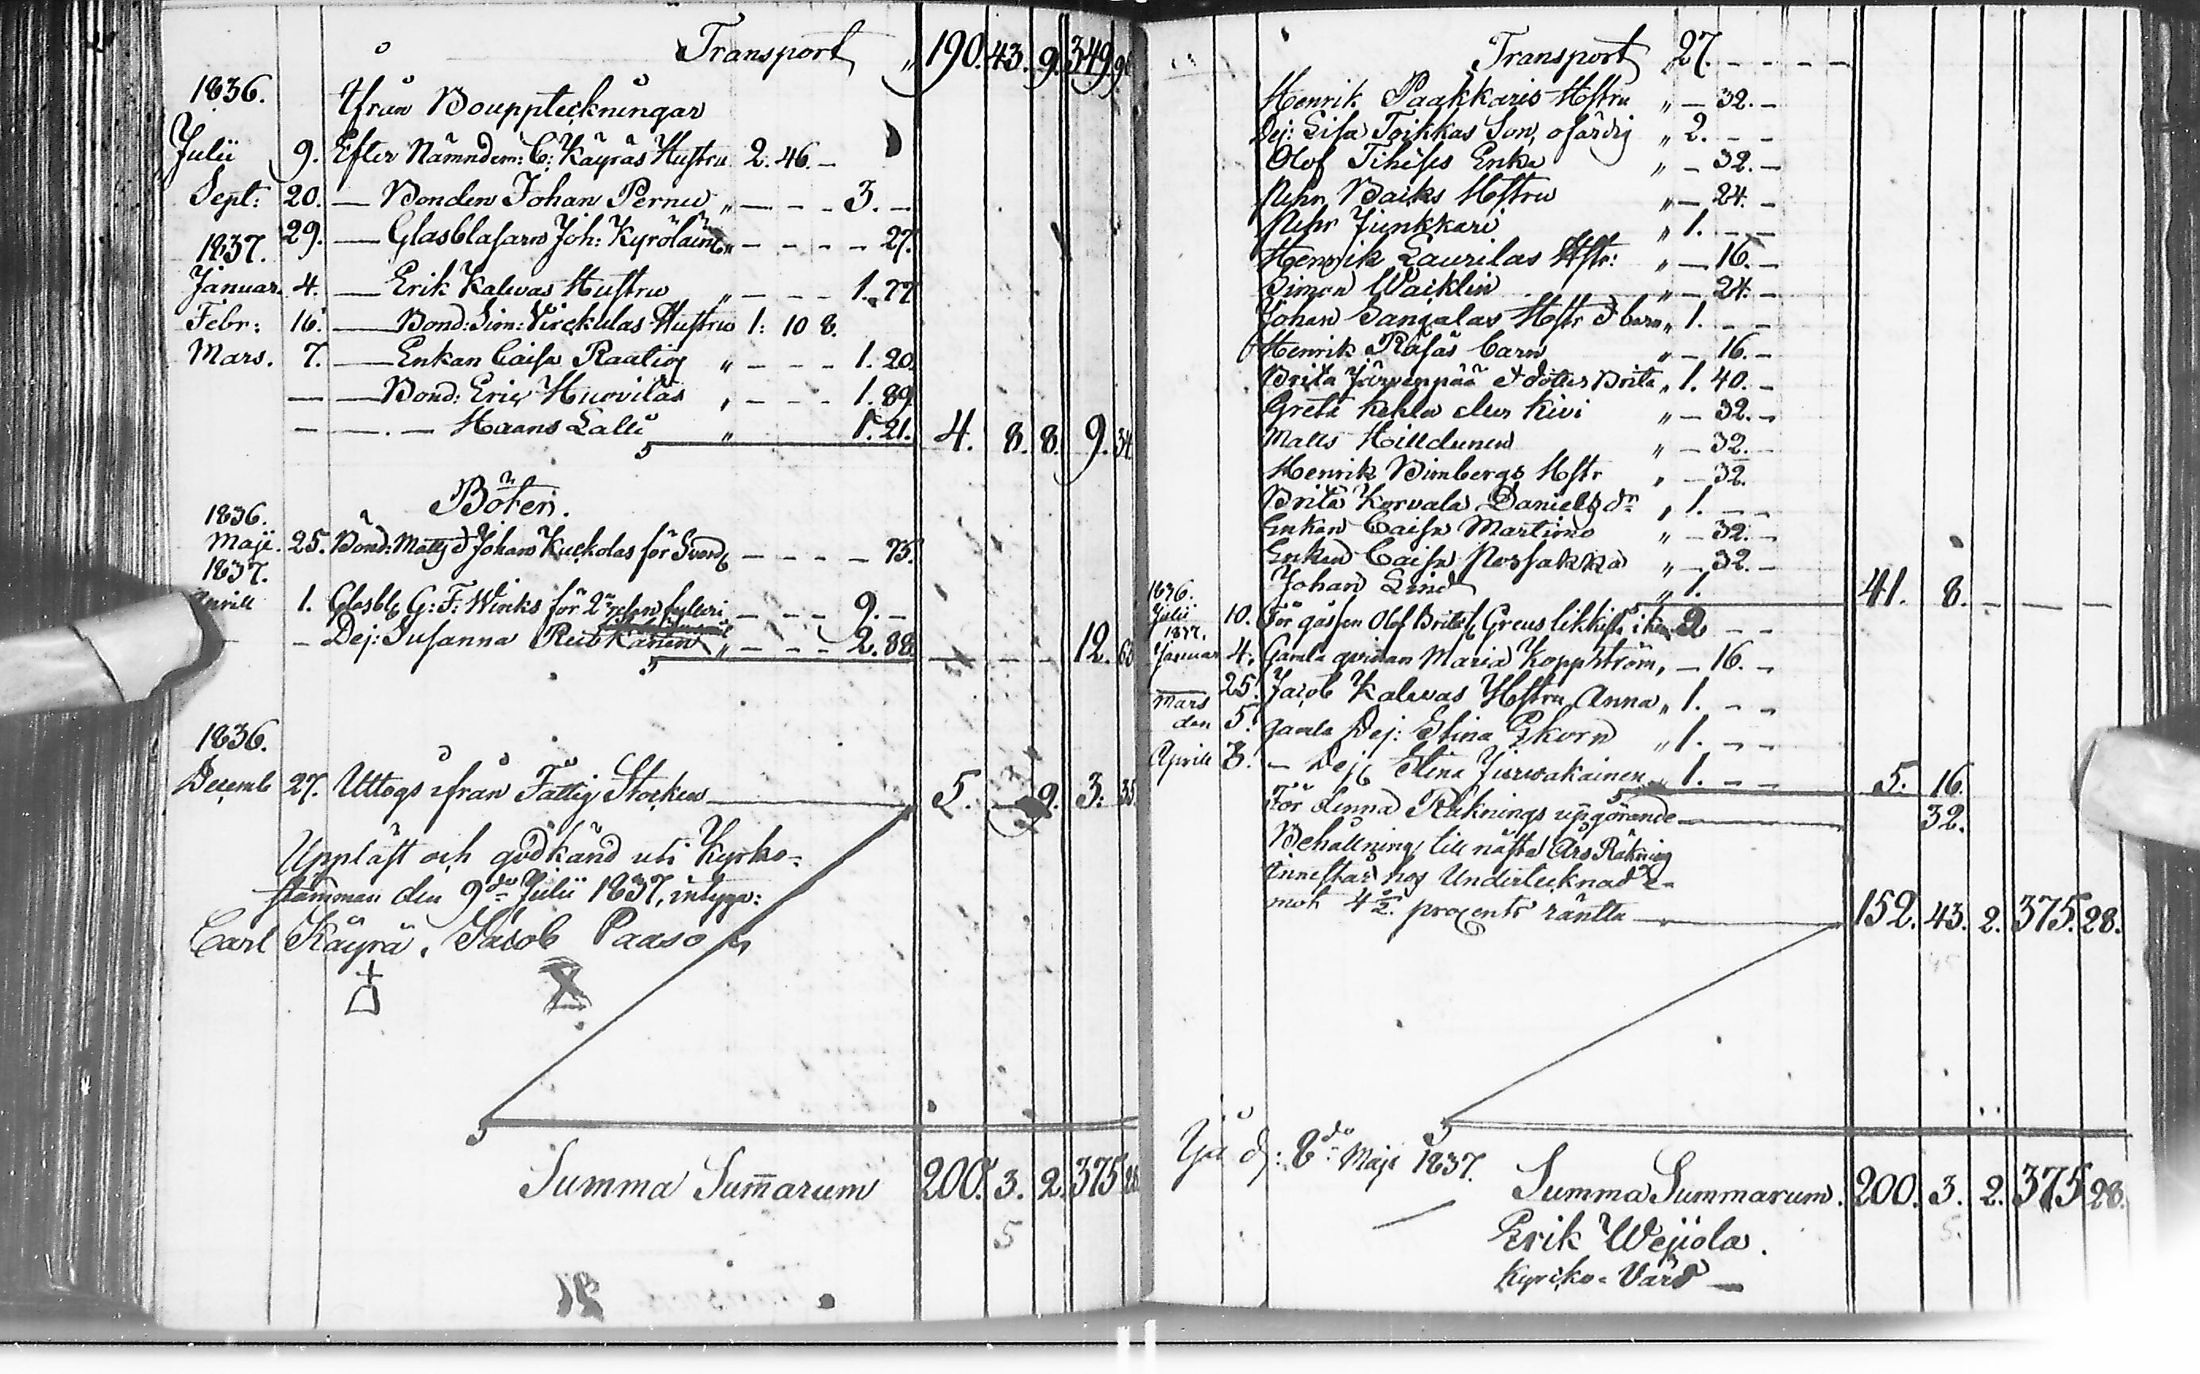 Transport " 190. 43. 9. 349. 9
1836. Ifrån Bouppteckningar
Julii 9. Efter Nämndem: C: Käyräs Hustru 2. 46. –
Sept: 20. — Bonden Johan Pernu " — – – 3. –
29. — Glasblasaren Joh: Kyröläine " – – – – 27.
1837.
Januar. 4. — Erik Kalwas Hustru " – – – 1. 77
Febr: 16. — Bond: Sim: Virckulas Hustru 1: 10 8.
Mars. 7. — Enkan Caisa Raatiq " – – – 1. 20.
— — Bond: Eric Huovilas " – – – 1. 89
— — . — Haans Lalli " 1. 21. 4. 8. 8. 9. 34.
Böter.
1836.
Maji. 25. Bönd: Matts & Johan Kuckolas för – – – – 75.
1837.
Aprill 1. Glasbl G: F: Wincks för 2 fylleri – – – 9. –
— – Dej: Susanna – – – 2. 88. — – – 12. 63
1836.
Decemb 27. Uttogs ifrån Fattig Stocken 5. — 9. 3. 35
Uppläst och godkänd uti Kyrko-
stämman den 9de Julii 1837, intyga:
Carl Käyrä. Jacob Paaso
Summa Summarum 200. 3. 2. 375 28
5
Transport " 27. – – – –
Henrik Paakkaris Hstru " — 32. –
Dej: Lisa Toikkas Son, ofärdig " 2. – –
Olof Tihises Enka " – 32. –
Pehr Baiks Hstru " – 24. –
Pehr Junkkari " 1. – –
Henrik Laurilas Hstr: " — 16. –
Simon Waiklin " – 24. –
Johan Sangalas Hstr & barn " 1. – –
Henrik Räsäs barn " – 16. –
Brita Järvenpää & dotter Brita " 1. 40. –
Greta Kehla eller Kivi " – 32. –
Matts Hilldunen " – 32. –
Henrik Bimbergs Hstr " – 32.
Brita Korvala Daniels dr " 1. – –
Enkan Caisa Martimo " – 32. –
Enkan Caisa Possakka " – 32. –
Johan Lind " 1. 41. 8. – — —
1836.
Julii 10. För gåssen Olof Greus likkista 2 – –
1837.
Januar 4. Gamla qvinan Maria Koppström, – 16. –
— 25. Jacob Kalevas Hstru Anna " 1. – –
Mars den 5. gamla Dej: Stina Ekorn " 1. – –
Aprill 8. – Dej Stina " 1. – – 5. 16.
För denna Räknings upgörande 32.
Behållning till nästa Års Räkning
innestar hos Undertecknad
mot 4 ½ procents ränta 152. 43. 2. 375. 28.
d: 8de Maji 1837.
Summa Summarum. 200. 3. 2. 375 28.
Erik Wejiola.
Kyrcko-Värd —